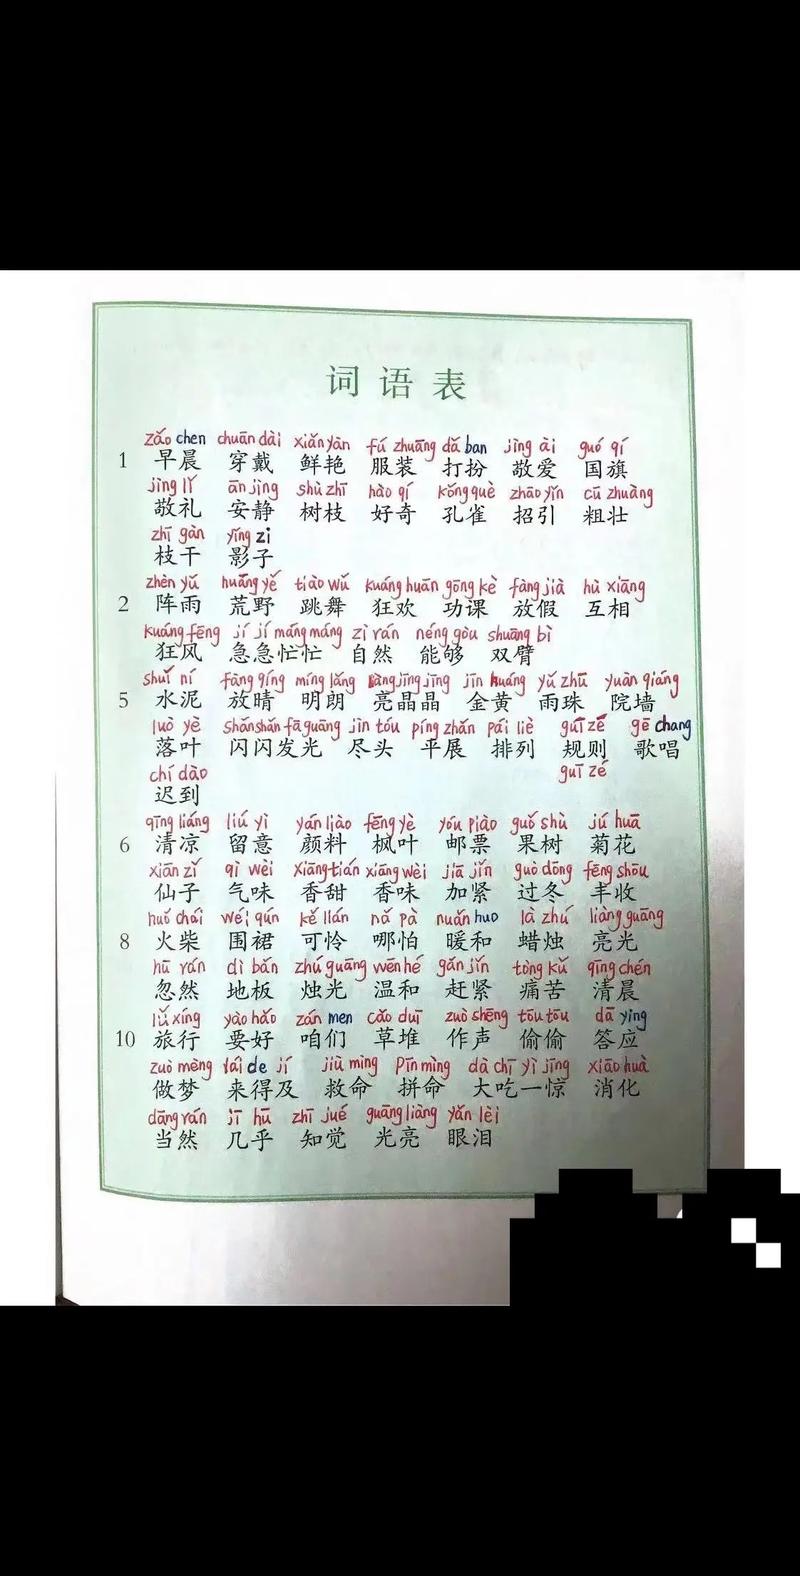 词语表
zǎo chen chuān dài xiān yàn fú zhuāng dǎ ban jìng ài guó qí
1 早晨 穿戴 鲜艳 服装 打扮 敬爱 国旗
jìng lǐ ān jìng shù zhī hào qí kǒng què zhāo yǐn cū zhuàng
敬礼 安静 树枝 好奇 孔雀 招引 粗壮
zhī gàn yǐng zi
枝干 影子
zhèn yǔ huāng yě tiào wǔ kuáng huān gōng kè fàng jià hù xiāng
2 阵雨 荒野 跳舞 狂欢 功课 放假 互相
kuáng fēng jí jí máng máng zì rán néng gòu shuāng bì
狂风 急急忙忙 自然 能够 双臂
shuǐ ní fàng qíng míng lǎng liàng jīng jīng jīn huáng yǔ zhū yuàn qiáng
5 水泥 放晴 明朗 亮晶晶 金黄 雨珠 院墙
luò yè shǎn shǎn fā guāng jìn tóu píng zhǎn pái liè guī zé gē chang
落叶 闪闪发光 尽头 平展 排列 规则 歌唱
chí dào guī zé
迟到
qīng liáng liú yì yán liào fēng yè yóu piào guǒ shù jú huā
6 清凉 留意 颜料 枫叶 邮票 果树 菊花
xiān zǐ qì wèi xiāng tián xiāng wèi jiā jǐn guò dōng fēng shōu
仙子 气味 香甜 香味 加紧 过冬 丰收
huǒ chái wéi qún kě lián nǎ pà nuǎn huo là zhú liàng guāng
8 火柴 围裙 可怜 哪怕 暖和 蜡烛 亮光
hū rán dì bǎn zhú guāng wēn hé gǎn jǐn tòng kǔ qīng chén
忽然 地板 烛光 温和 赶紧 痛苦 清晨
lǚ xíng yào hǎo zán men cǎo duī zuò shēng tōu tōu dā ying
10 旅行 要好 咱们 草堆 作声 偷偷 答应
zuò mèng lái de jí jiù mìng pīn mìng dà chī yì jīng xiāo huà
做梦 来得及 救命 拼命 大吃一惊 消化
dāng rán jī hū zhī jué guāng liàng yǎn lèi
当然 几乎 知觉 光亮 眼泪